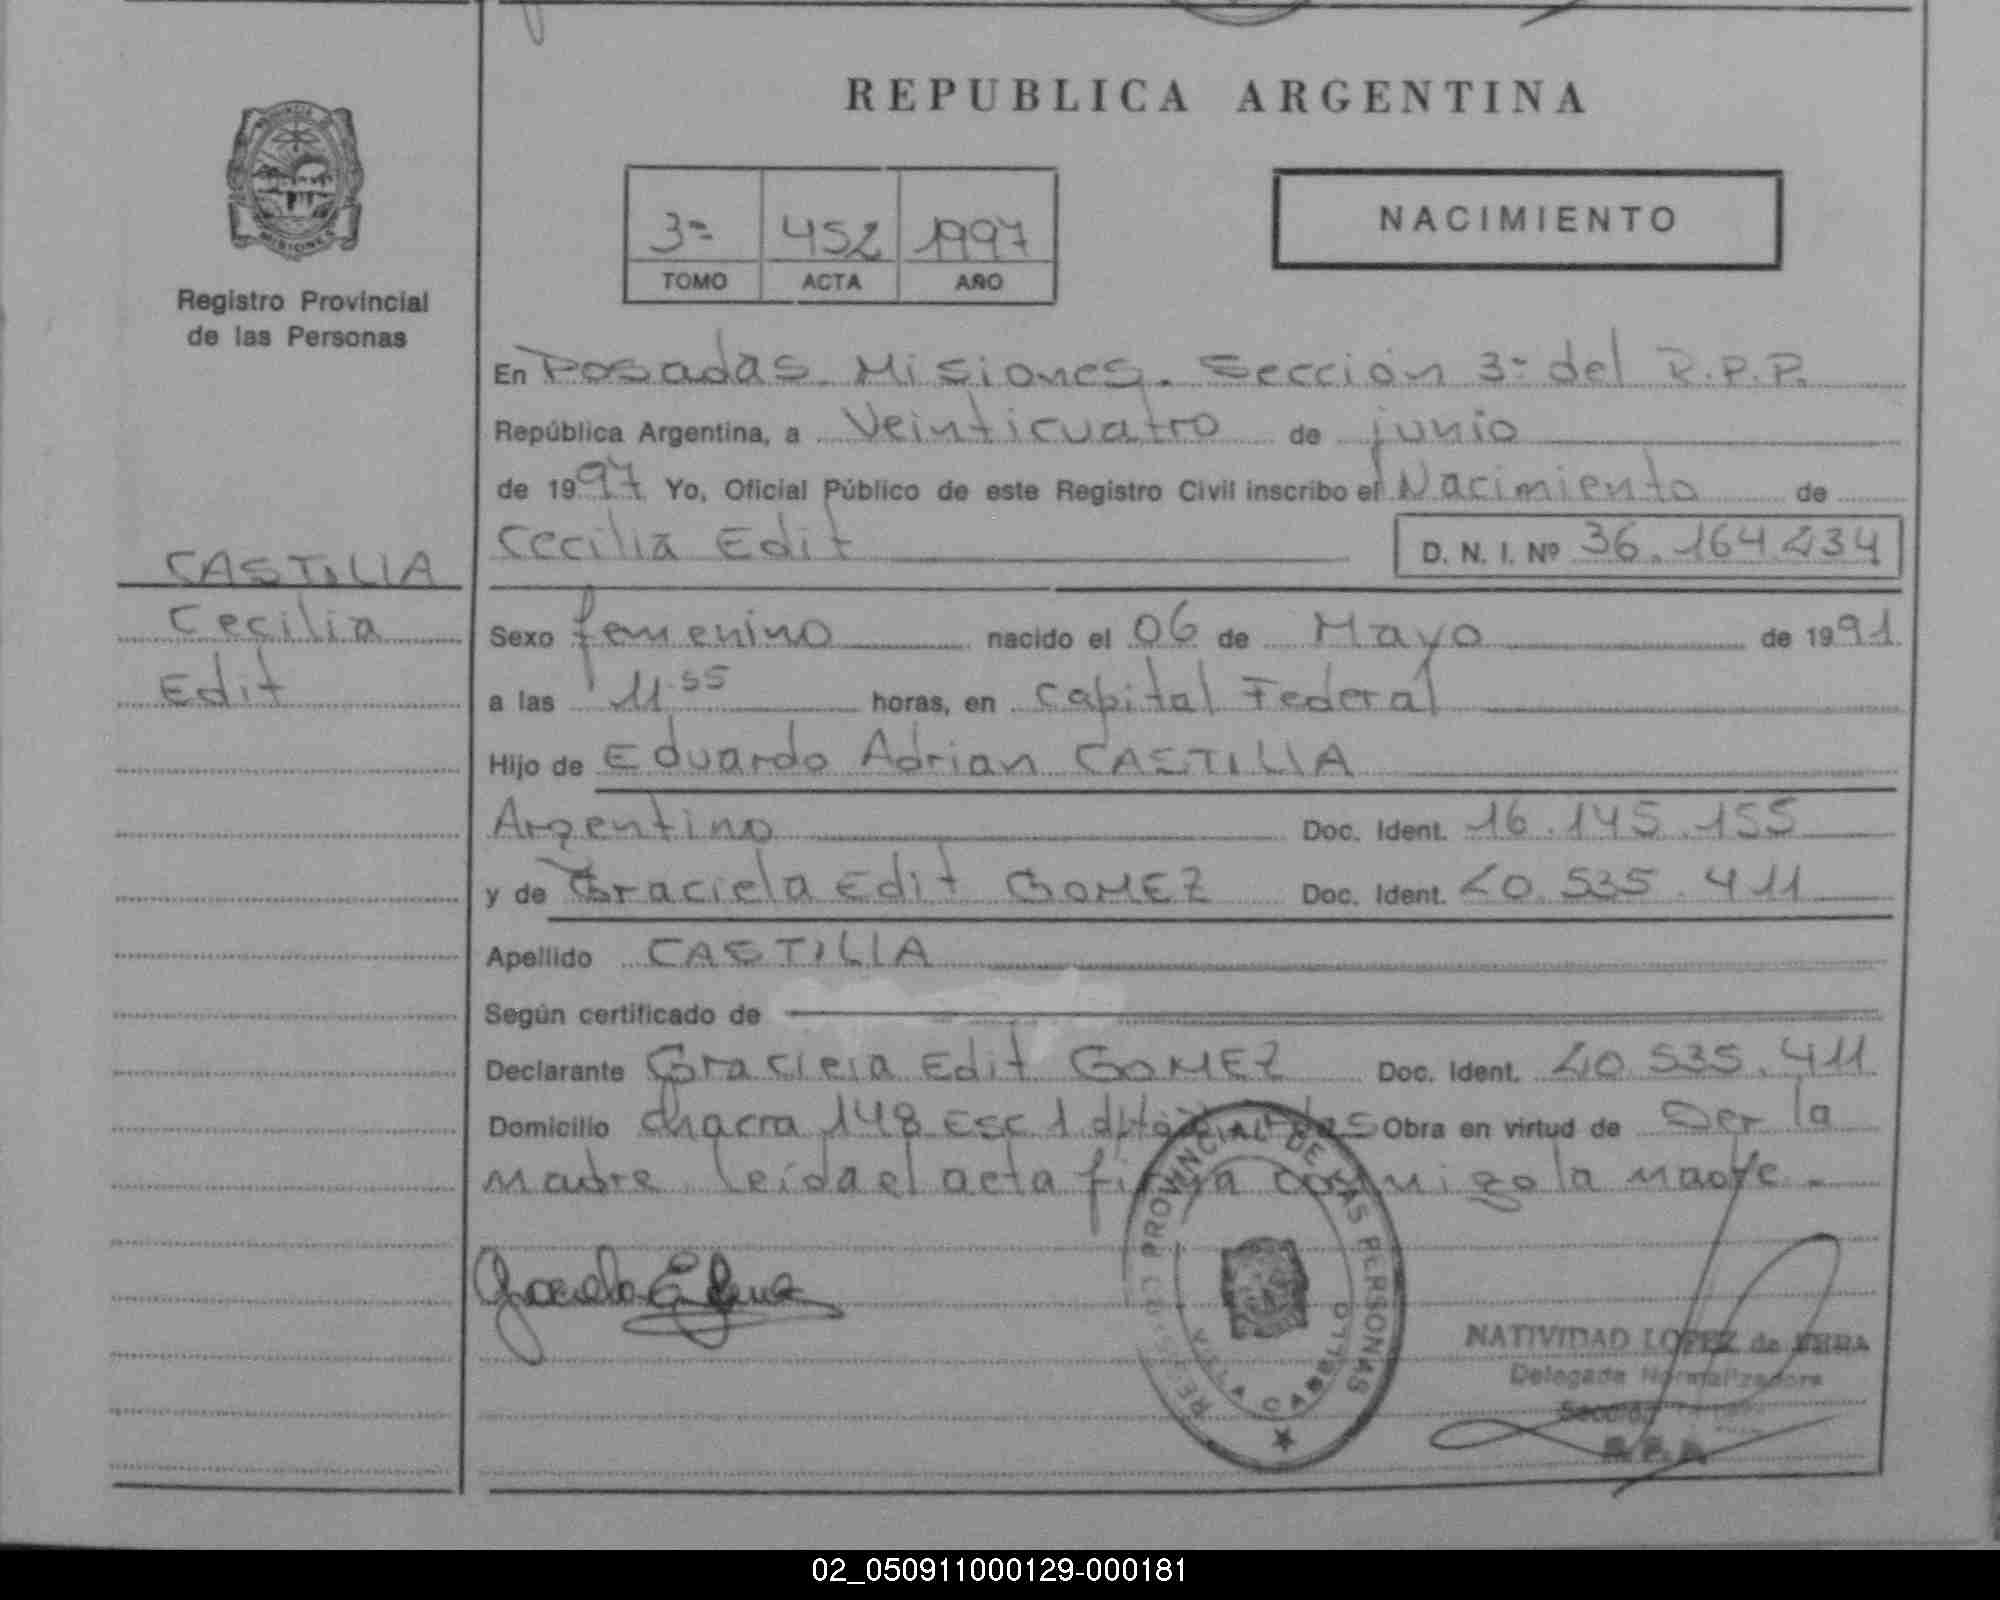 REPUBLICA ARGENTINA
3ª 452 1997
TOMO ACTA AÑO
NACIMIENTO
MISIONES
Registro Provincial
de las Personas
En Posadas. Misiones. Sección 3ª del R.P.P.
República Argentina, a Veinticuatro de junio
de 1997 Yo, Oficial Público de este Registro Civil inscribo el Nacimiento de
Cecilia Edit D. N. I. Nº 36.164.234
CASTILLA
Cecilia
Edit
Sexo femenino nacido el 06 de Mayo de 1991
a las 11.55 horas, en Capital Federal
Hijo de Eduardo Adrian CASTILLA
Argentino Doc. Ident. 16.145.155
y de Graciela Edit GOMEZ Doc. Ident. 20.535.411
Apellido CASTILLA
Según certificado de
Declarante Graciela Edit GOMEZ Doc. Ident. 20.535.411
Domicilio chacra 148 Esc 1 Obra en virtud de Ser la
madre. leida el acta firma conmigo la madre.-
PROVINCIAL DE LAS PERSONAS
VILLA CABELLO
NATIVIDAD LOPEZ de
Delegada Normalizadora
Sección
R.P.P.
02_050911000129-000181